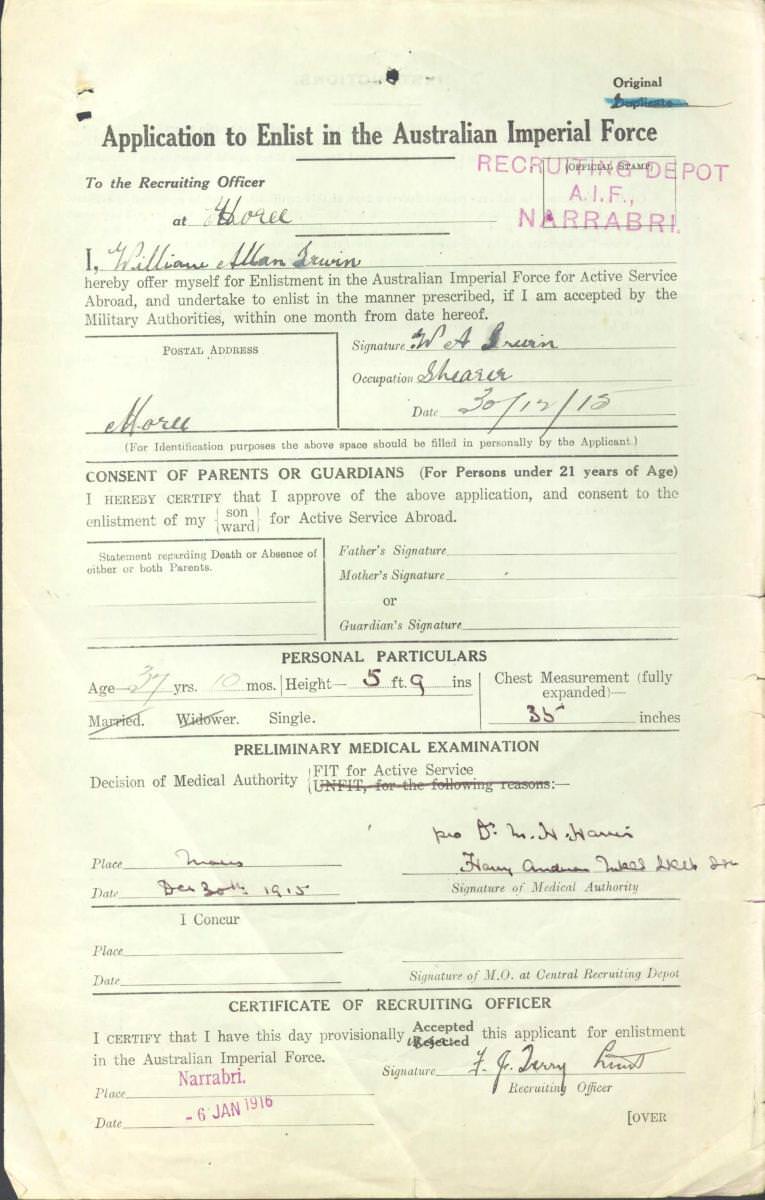 Original
Duplicate
Application to Enlist in the Australian Imperial Force
(OFFICIAL STAMP)
RECRUITING DEPOT
A.I.F.,
NARRABRI.
To the Recruiting Officer
at Moree
I, William Allan Irwin
hereby offer myself for Enlistment in the Australian Imperial Force for Active Service
Abroad, and undertake to enlist in the manner prescribed, if I am accepted by the
Military Authorities, within one month from date hereof.
POSTAL ADDRESS
Moree
Signature W A Irwin
Occupation Shearer
Date 30/12/15
(For Identification purposes the above space should be filled in personally by the Applicant.)
CONSENT OF PARENTS OR GUARDIANS (For Persons under 21 years of Age)
I HEREBY CERTIFY that I approve of the above application, and consent to the
enlistment of my {son ward} for Active Service Abroad.
Statement regarding Death or Absence of
either or both Parents.
Father's Signature
Mother's Signature
or
Guardian's Signature
PERSONAL PARTICULARS
Age—37 yrs. 10 mos. Height— 5 ft. 9 ins
Chest Measurement (fully
expanded)—
35 inches
Married. Widower. Single.
PRELIMINARY MEDICAL EXAMINATION
Decision of Medical Authority {FIT for Active Service
UNFIT, for the following reasons:—
pro Dr. M. H. Harris
Place Moree
Harry
Date Dec 30th 1915
Signature of Medical Authority
I Concur
Place
Date
Signature of M.O. at Central Recruiting Depot
CERTIFICATE OF RECRUITING OFFICER
I CERTIFY that I have this day provisionally Accepted Rejected this applicant for enlistment
in the Australian Imperial Force.
Signature F. J. Terry Lieut
Recruiting Officer
Place Narrabri.
Date - 6 JAN 1916
[OVER